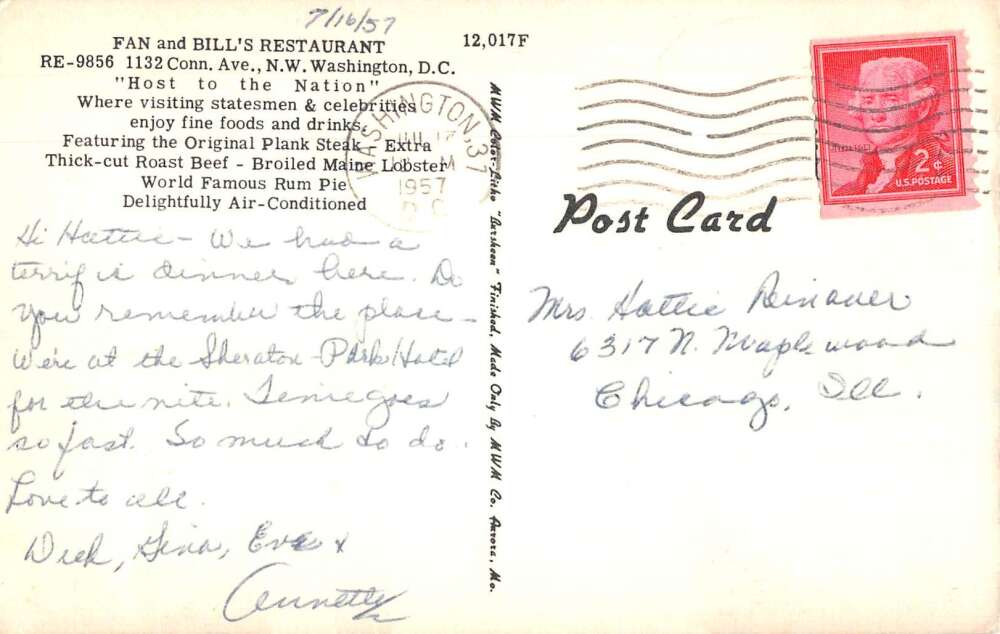 7/16/57
FAN and BILL'S RESTAURANT
RE-9856 1132 Conn. Ave., N.W. Washington, D.C.
"Host to the Nation"
Where visiting statesmen & celebrities
enjoy fine foods and drinks.
Featuring the Original Plank Steak - Extra
Thick-cut Roast Beef - Broiled Maine Lobster
World Famous Rum Pie
Delightfully Air-Conditioned
Hi Hattie - We had a
terrific dinner here. Do
you remember the place -
We're at the Sheraton-Park Hotel
for the nite. Time goes
so fast. So much to do.
Love to all.
Dick, Gina, Eve &
Annette
12,017F
MWM Color-Litho "Aursheen" Finished, Made Only By MWM Co. Aurora, Mo.
WASHINGTON, 37
JUL 17
M
1957
D.C.
2¢
U.S. POSTAGE
Post Card
Mrs. Hattie Reinauer
6317 N. Maplewood
Chicago, Ill.